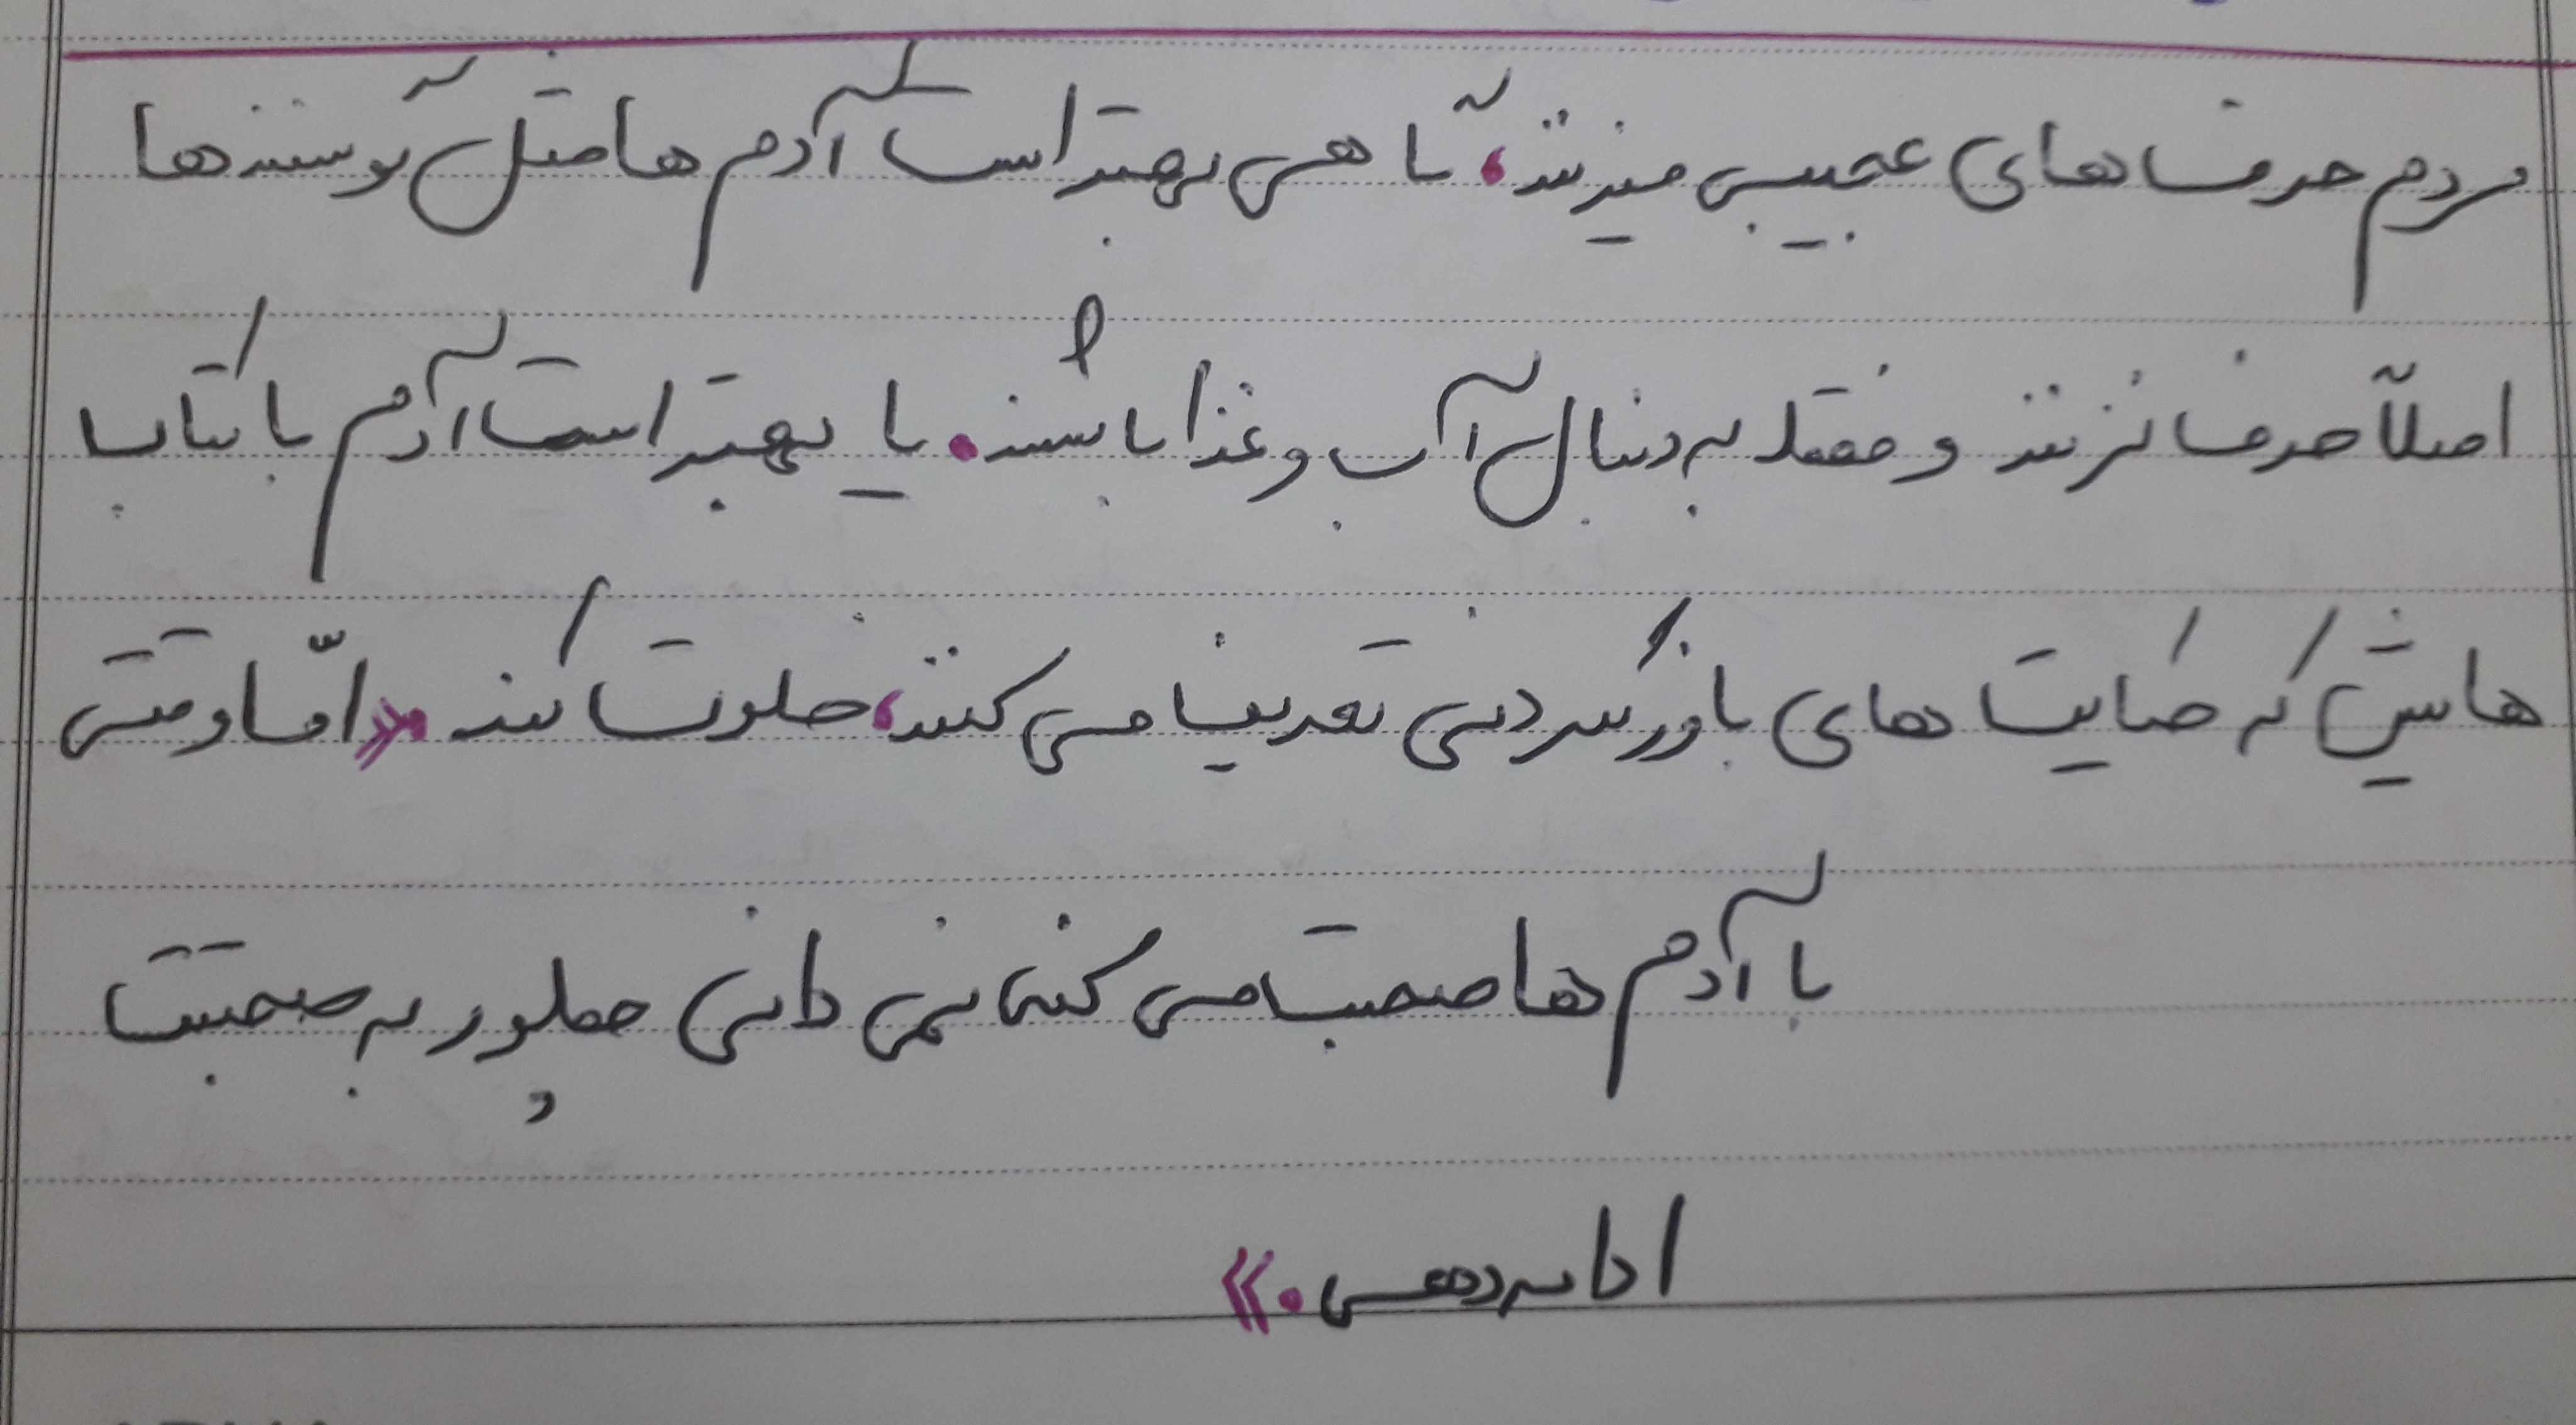 مردم حرف های عجیبی میزنند، گاهی بهتر است آدم ها مثل گوسفندها
اصلاً حرف نزنند و فقط به دنبال آب و غذا باشند. یا بهتر است آدم با کتاب
هایش که حکایت های باورنکردنی تعریف می کنند، خلوت کند «امّا وقتی
با آدم ها صحبت می کنی نمی دانی چطور به صحبتت
ادامه دهی.»